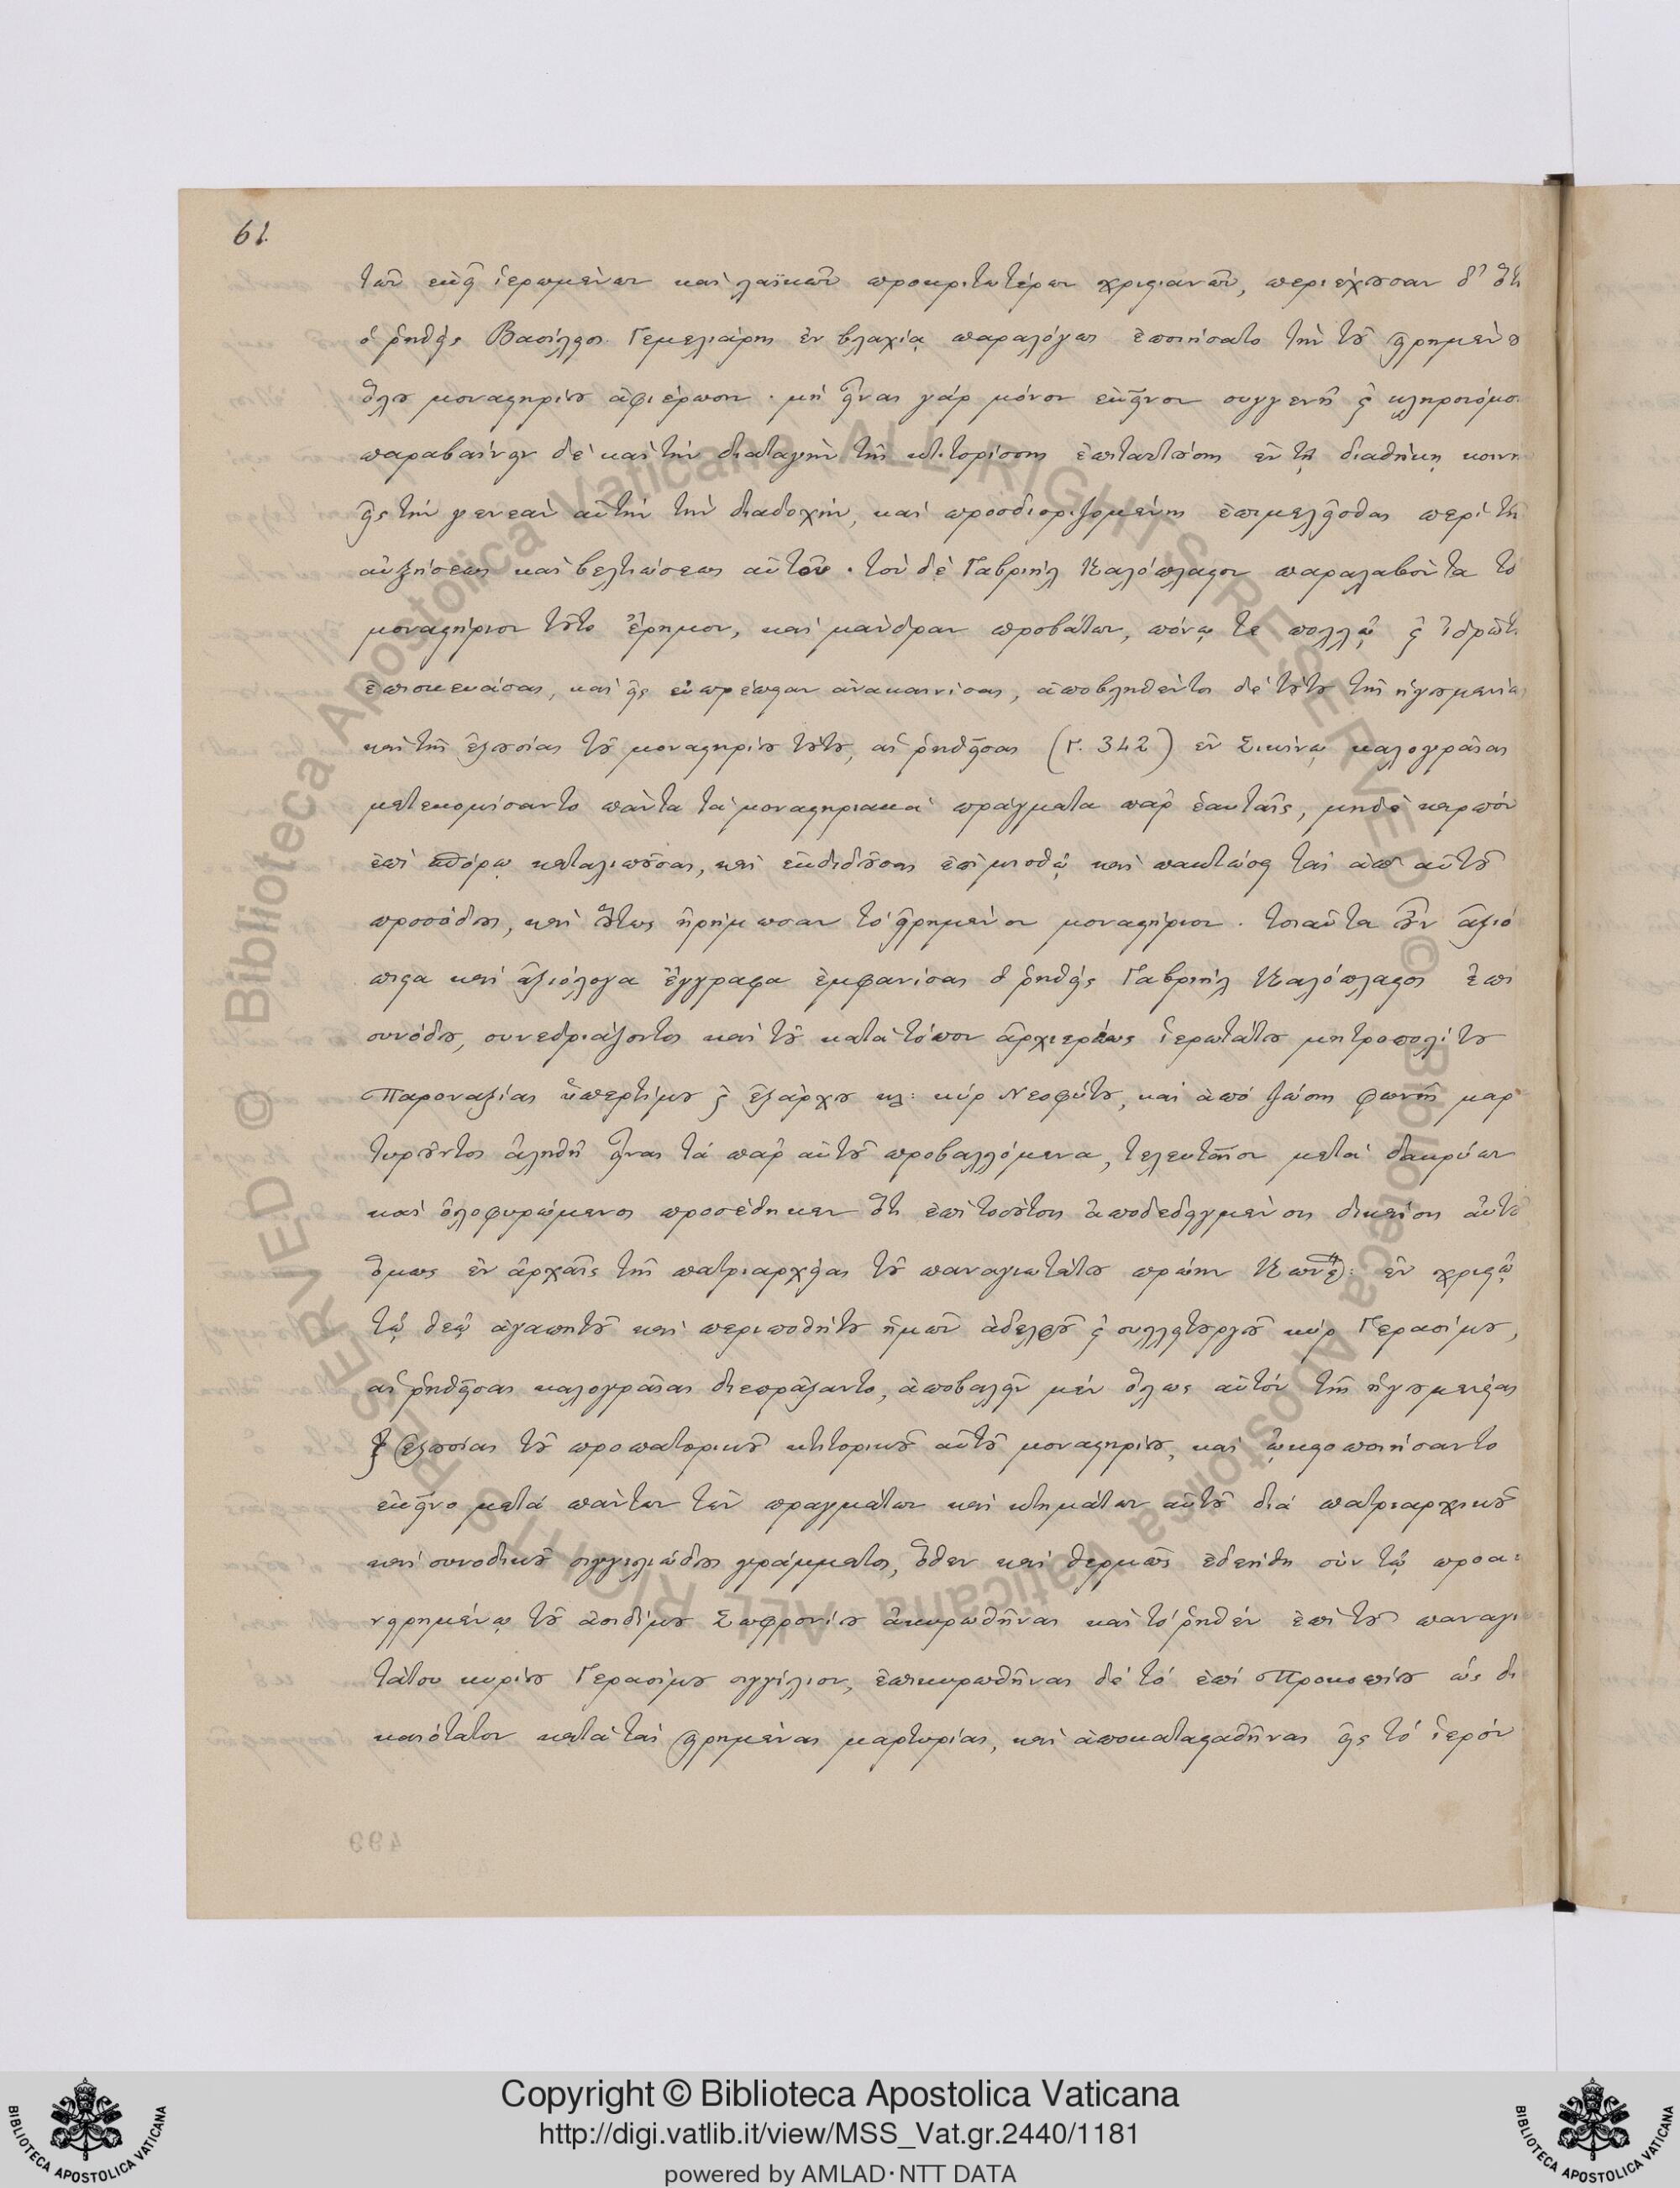 61.
τῶν ἐκεῖ ἱερωμένων καὶ λαϊκῶν προκριτωτέρων χριστιανῶν, περιέχουσαν δ' ὅτι
ὁ ῥηθεὶς Βασίλειος Γεμελιάρης ἐν βλαχίᾳ παραλόγως ἐποιήσατο τὴν τοῦ εἰρημένου
ὅλου μοναστηρίου ἀφιέρωσιν· μὴ εἶναι γάρ μόνον ἐκεῖνον συγγενῆ ϛ κληρονόμο
παραβαίνειν δὲ καὶ τὴν διαταγὴν τῆς κτιτορίσσης ἐπιταττούσης ἐν τῇ διαθήκῃ κοινη
εἰς τὴν γενεὰν αὐτὴν τὴν διαδοχήν, καὶ προσδιοριζομένης ἐπιμελεῖσθαι περὶ τῆ
αὐξήσεως καὶ βελτιώσεως αὐτοῦ. τὸν δὲ Γαβριὴλ Καλόπλαστον παραλαβόντα τὸ
μοναστήριον τοῦτο ἔρημον, καὶ μάνδραν προβάτων, πόνῳ τε πολλῷ ϛ ἱδρῶτι
ἐπισκευάσαι, καὶ εἰς εὐπρέπειαν ἀνακαινίσαι, ἀποβληθέντος δὲ τούτου τῆς ἡγουμενίας
καὶ τῆς ἐξουσίας τοῦ μοναστηρίου τούτου, αἱ ῥηθεῖσαι (Γ. 342) ἐν Σικίνῳ καλογραῖαι
μετεκομίσαντο πάντα τὰ μοναστηριακὰ πράγματα παρ' ἑαυταῖς, μηδὲ καρπὸν
ἐπὶ σπόρῳ καταλιποῦσαι, καὶ ἐκδιδοῦσαι ἐπὶ μισθῷ καὶ πακτώσει τὰς ἀπ' αὐτοῦ
προσόδους, καὶ οὕτως ἠρήμωσαν τὸ εἰρημένον μοναστήριον. τοιαῦτα οὖν ἀξιό
πιστα καὶ ἀξιόλογα ἔγγραφα ἐμφανίσας ὁ ῥηθεὶς Γαβριὴλ Καλόπλαστος ἐπὶ
συνόδου, συνεδριάζοντος καὶ τοῦ κατὰ τόπον ἀρχιερέως ἱερωτάτου μητροπολίτου
Παροναξίας ὑπερτίμου ϛ ἐξάρχου κλ: κὺρ Νεοφύτου, καὶ ἀπὸ ζώσης φωνῆς μαρ
τυροῦντος ἀληθῆ εἶναι τὰ παρ' αὐτοῦ προβαλλόμενα, τελευταῖον μετὰ δακρύων
καὶ ὀλοφυρόμενος προσέθηκεν ὅτι ἐπὶ τοσούτοις ἀποδεδειγμένοις δικαίοις αὐτοῦ
ὅμως ἐν ἀρχαῖς τῆς πατριαρχείας τοῦ παναγιωτάτου πρώην Κων: ἐν χριστῷ
τῷ θεῷ ἀγαπητοῦ καὶ περιποθήτου ἡμῶν ἀδελφοῦ ϛ συλλειτουργοῦ κὺρ Γερασίμου,
αἱ ῥηθεῖσαι καλογραῖαι διεπράξαντο, ἀποβαλεῖν μὲν ὅλως αὐτὸν τῆς ἡγουμενείας
ϛ ἐξουσίας τοῦ προπατορικοῦ κτιτορικοῦ αὐτοῦ μοναστηρίου, καὶ ᾠκειοποιήσαντο
ἐκεῖνο μετὰ πάντων τῶν πραγμάτων καὶ κτημάτων αὐτοῦ διὰ πατριαρχικοῦ
καὶ συνοδικοῦ σιγγιλιώδους γράμματος, ὅθεν καὶ θερμῶς ἐδεήθη σὺν τῷ προα:
νειρημένῳ τοῦ ἀοιδίμου Σωφρονίου ἀκυρωθῆναι καὶ τὸ ῥηθὲν ἐπὶ τοῦ παναγι
τάτου κυρίου Γερασίμου σιγγίλιον, ἐπικυρωθῆναι δὲ τὸ ἐπὶ Προκοπίου ὡς δι
καιότατον κατὰ τὰς εἰρημένας μαρτυρίας, καὶ ἀποκατασταθῆναι εἰς τὸ ἱερόν
Copyright © Biblioteca Apostolica Vaticana
http://digi.vatlib.it/view/MSS_Vat.gr.2440/1181
powered by AMLAD·NTT DATA